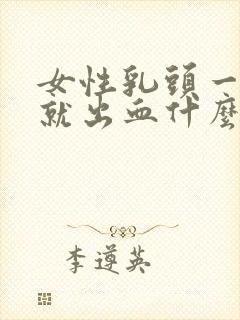 女性乳頭一
就出血什麼
李遵英